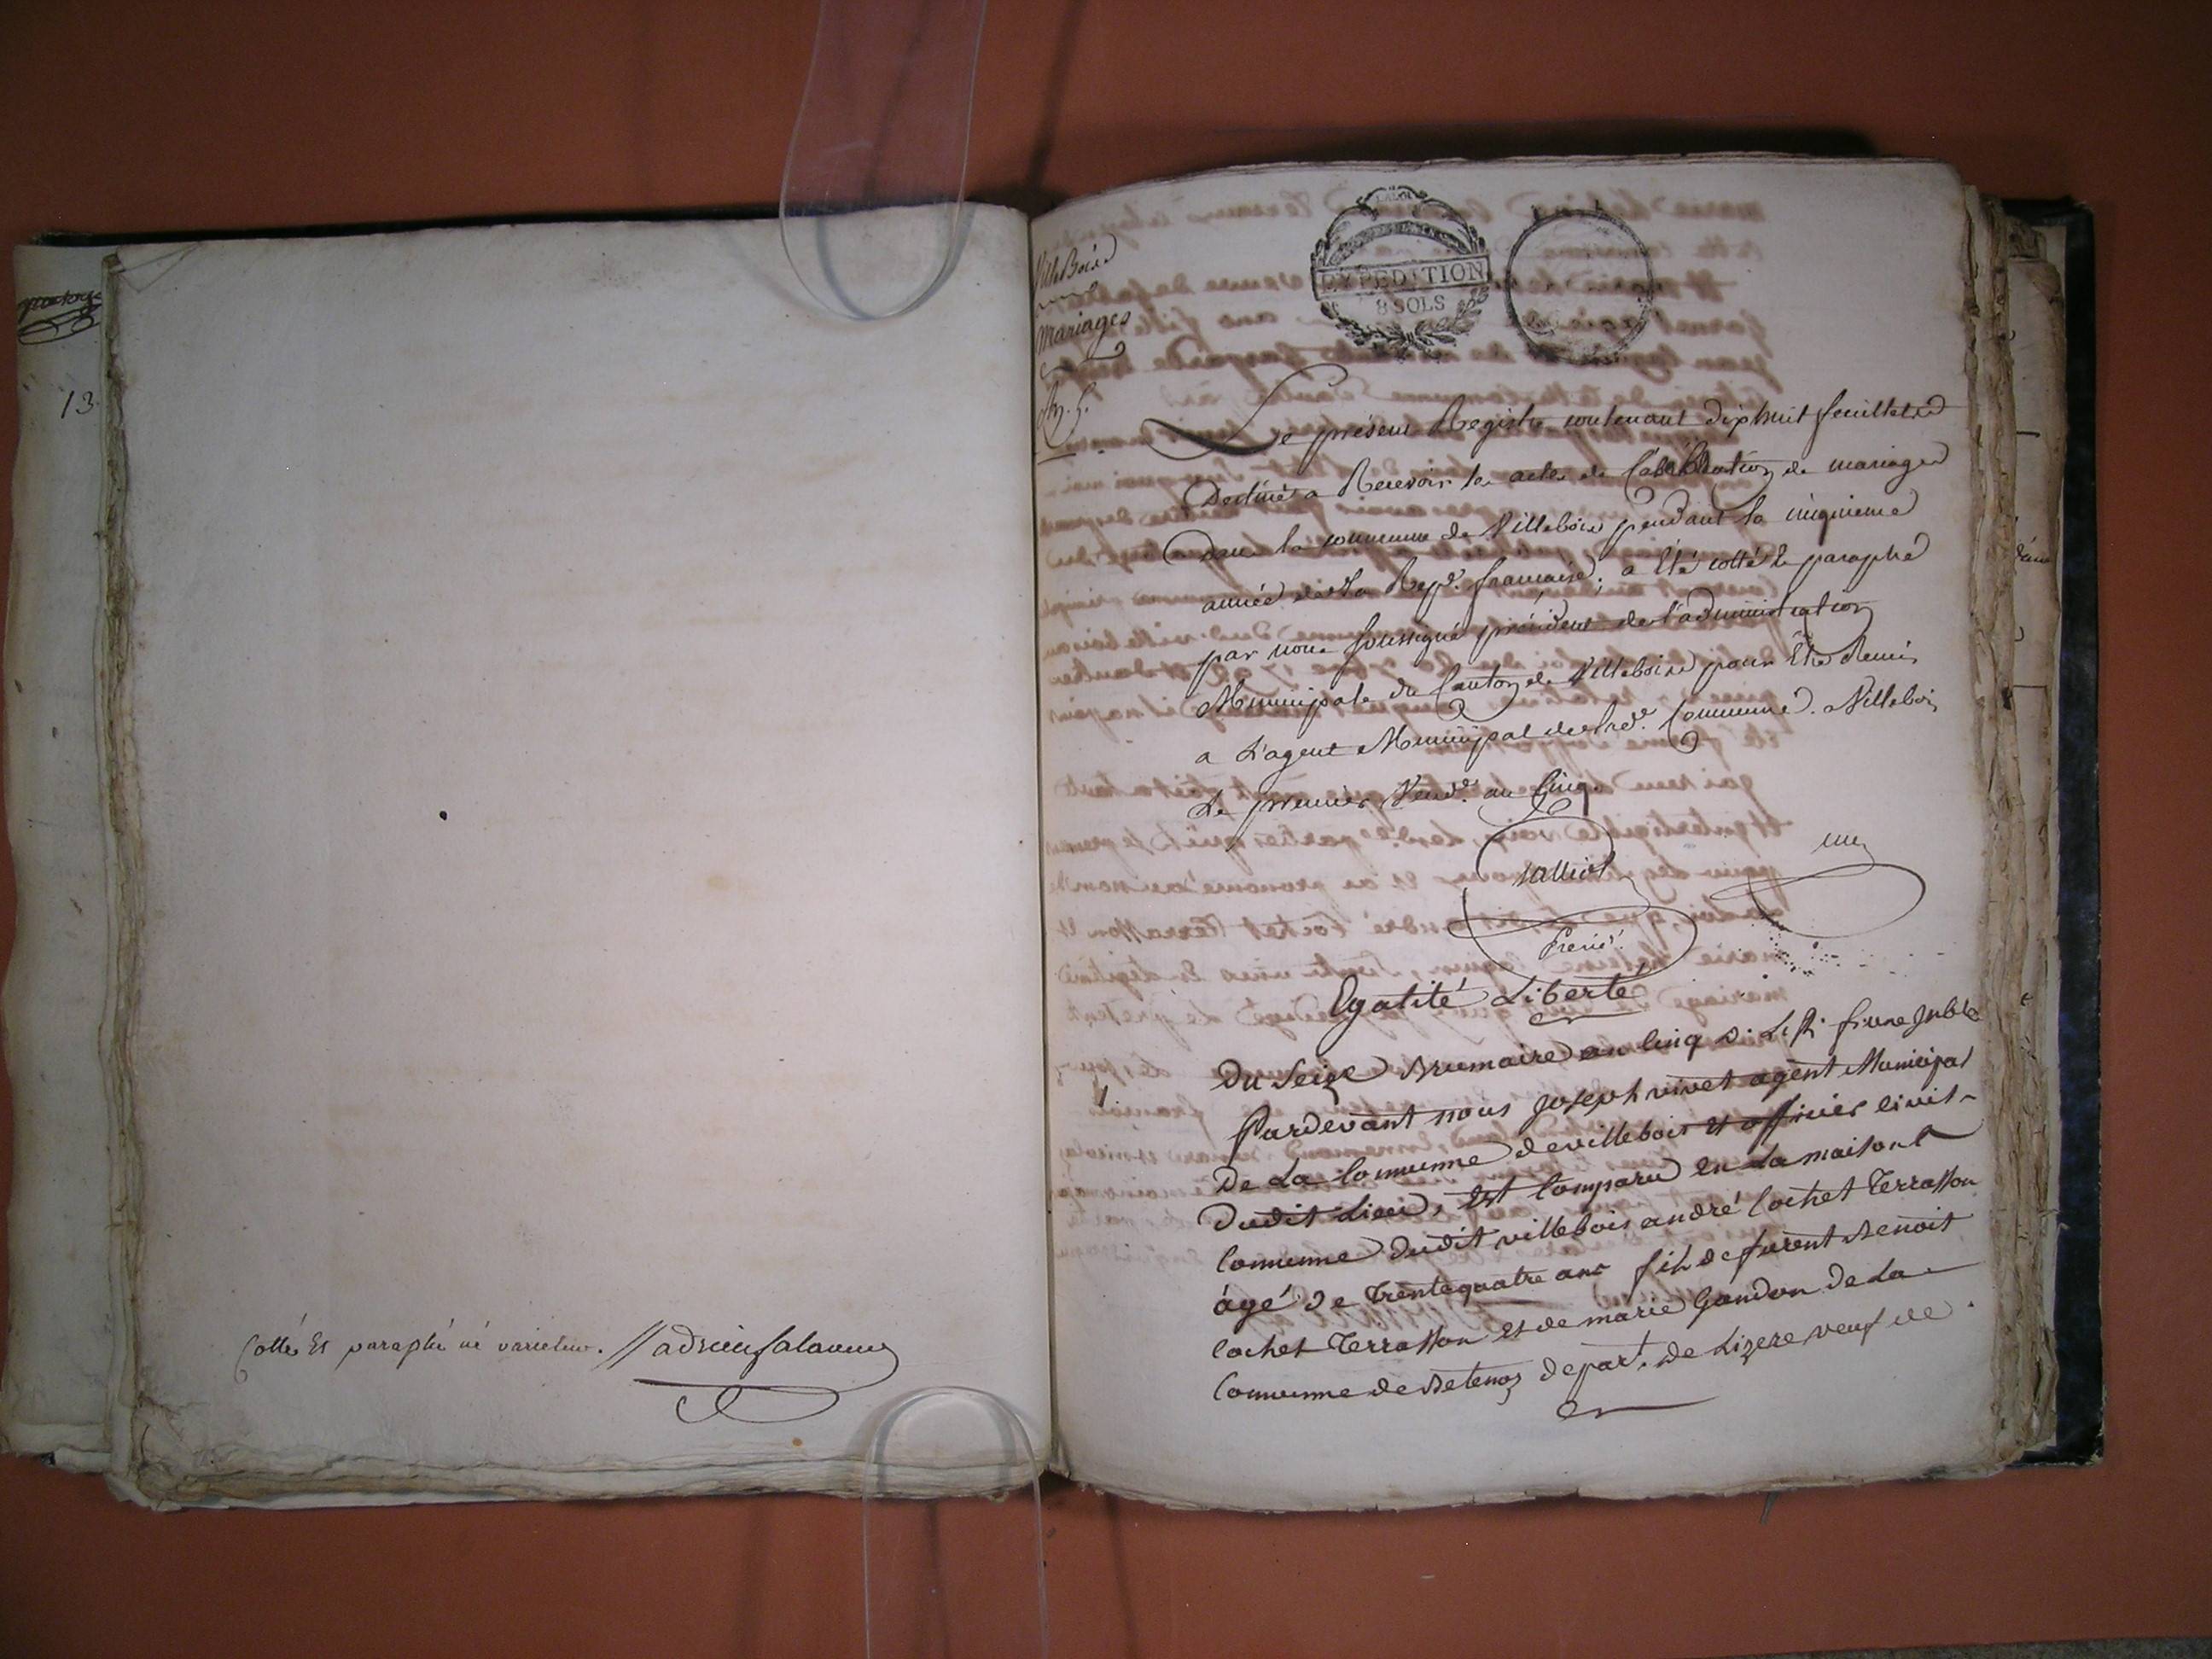 13.
Cotté Et paraphé né varietur.
VilleBois
Mariages
An. 5.
LA LOI
EXPEDITION
8 SOLS
Le présent Registre contenant dixhuit feuillets
Destiné a Recevoir les actes de Célébration de mariages
Dans la commune de Villebois pendant la cinquieme
année de la Rep.e francaise; a Eté cotté & paraphé
par nous soussigné président de l'administration
Municipale du Canton de Villebois pour Etre Remis
a L'agent Municipal de lad.e Commune. a Villebois
Le premier Vend.e an Cinq
une
Egalité Liberté
1
Du seize Brumaire an cinq de La R. f. une
Pardevant nous joseph vivet agent Municipal
De La Commune de villebois et officier civil
Dudit Lieu, Est Comparu en La maison
Commune dudit villebois andré Cochet Terrasson
âgé de Trente quatre ans fils de furent Benoit
Cochet Terrasson et de marie Gandon De La
Commune de depart. de Lizere veuf de